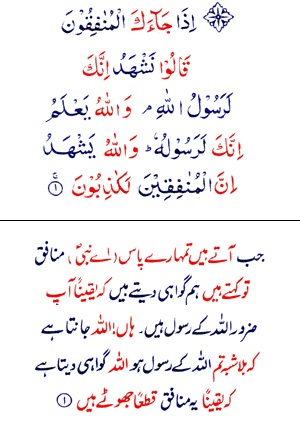 اِذَا جَآءَكَ الْمُنٰفِقُوْنَ
قَالُوْا نَشْهَدُ اِنَّكَ
لَرَسُوْلُ اللّٰهِ ۘ وَاللّٰهُ يَعْلَمُ
اِنَّكَ لَرَسُوْلُهٗ ؕ وَاللّٰهُ يَشْهَدُ
اِنَّ الْمُنٰفِقِيْنَ لَكٰذِبُوْنَ ۚ ۝۱
جب آتے ہیں تمہارے پاس (اے نبیؐ) ، منافق
تو کہتے ہیں ہم گواہی دیتے ہیں کہ یقیناً آپ
ضرور اللہ کے رسول ہیں۔ ہاں! اللہ جانتا ہے
کہ بلاشبہ تم اللہ کے رسول ہو اللہ گواہی دیتا ہے
کہ یقیناً یہ منافق قطعاً جھوٹے ہیں ۝۱